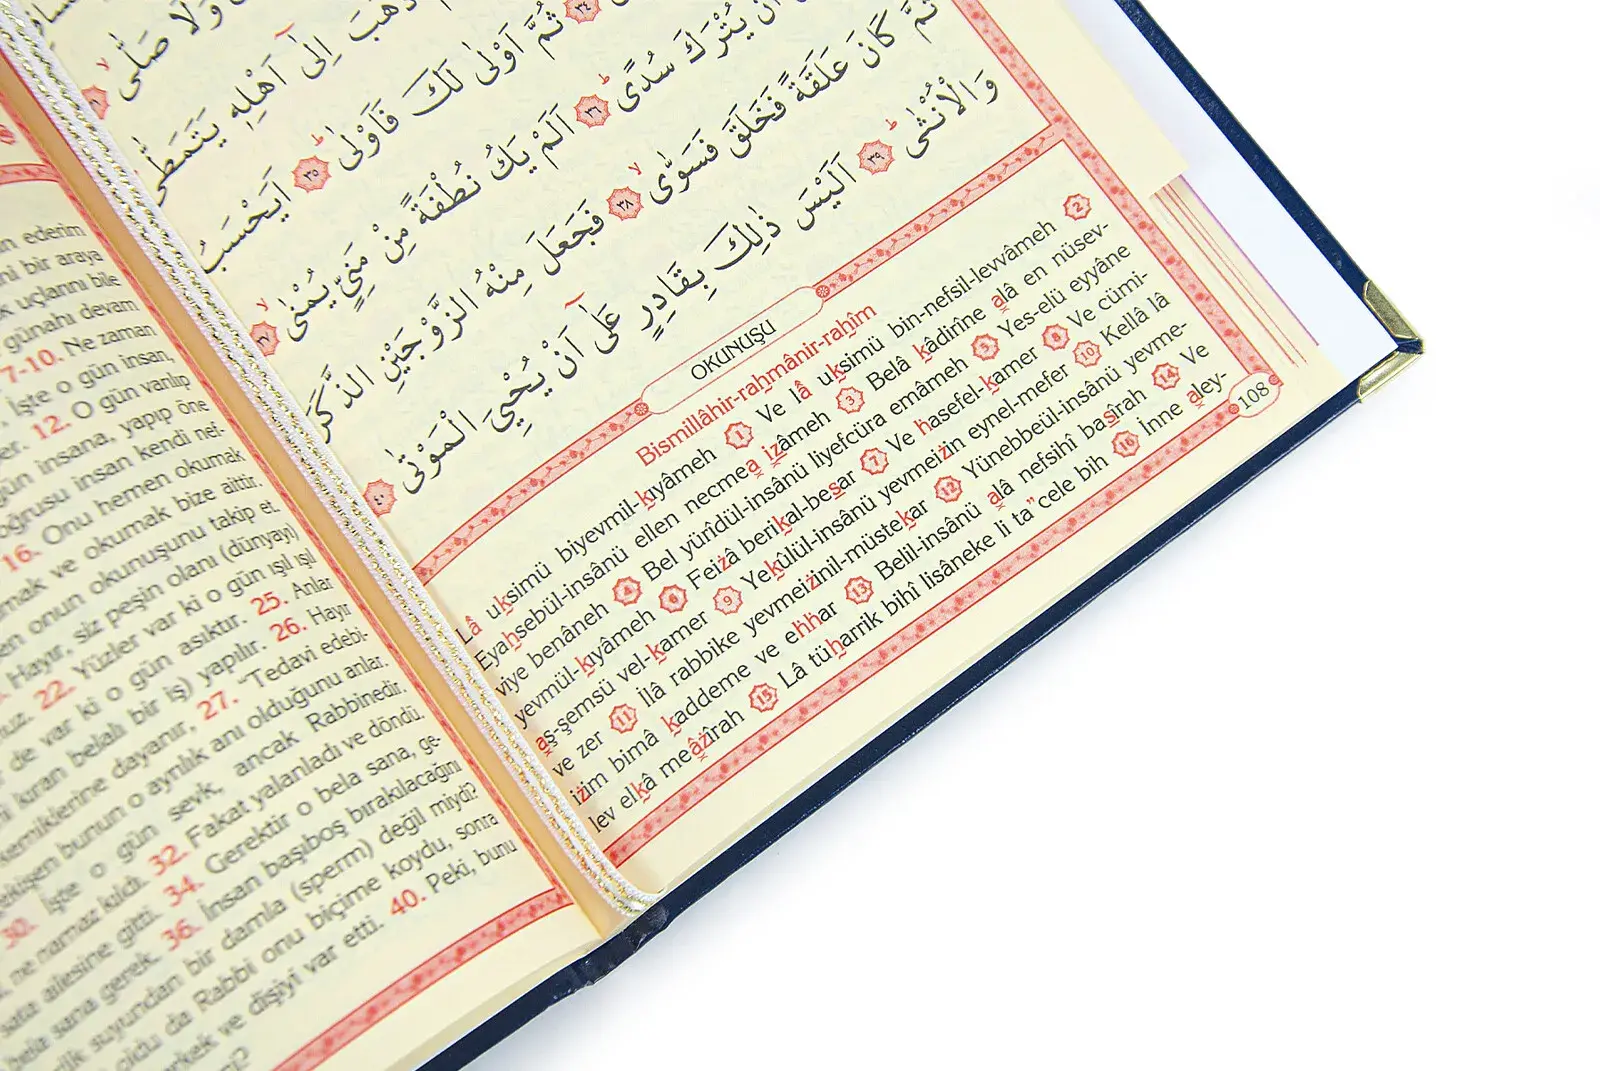 وَلَا صَلّٰى
ذَهَبَ اِلٰٓى اَهْلِهٖ يَتَمَطّٰى
٣٤ ثُمَّ اَوْلٰى لَكَ فَاَوْلٰى ٣٥ اَيَحْسَبُ
اَنْ يُتْرَكَ سُدًى ٣٦ اَلَمْ يَكُ نُطْفَةً مِنْ مَنِيٍّ يُمْنٰى ٣٧
ثُمَّ كَانَ عَلَقَةً فَخَلَقَ فَسَوّٰى ٣٨ فَجَعَلَ مِنْهُ الزَّوْجَيْنِ الذَّكَرَ
وَالْاُنْثٰى ٣٩ اَلَيْسَ ذٰلِكَ بِقَادِرٍ عَلٰٓى اَنْ يُحْيِيَ الْمَوْتٰى ٤٠
OKUNUŞU
Bismillâhir-rahmânir-rahîm
Lâ uksimü biyevmil-kıyâmeh 1 Ve lâ uksimü bin-nefsil-levvâmeh 2
Eyahsebül-insânü ellen necmea izâmeh 3 Belâ kâdirîne alâ en nüsev-
viye benâneh 4 Bel yürîdül-insânü liyefcüra emâmeh 5 Yes-elü eyyâne
yevmül-kıyâmeh 6 Feizâ berikal-besar 7 Ve hasefel-kamer 8 Ve cümi-
aş-şemsü vel-kamer 9 Yekûlül-insânü yevmeizin eynel-mefer 10 Kellâ lâ
ve zer 11 İlâ rabbike yevmeizinil-müstekar 12 Yünebbeül-insânü yevme-
izim bimâ kaddeme ve ehhar 13 Belil-insânü alâ nefsihî basîrah 14 Ve
lev elkâ meâzîrah 15 Lâ tüharrik bihî lisâneke li ta"cele bih 16 İnne aley-
108
ederim
bir araya
uçlarını bile
günahı devam
7-10. Ne zaman
İşte o gün insan,
12. O gün varıp
gün insana, yapıp öne
doğrusu insan kendi nef-
16. Onu hemen okumak
ve okumak bize aittir.
onun okunuşunu takip et.
Hayır, siz peşin olanı (dünyayı)
22. Yüzler var ki o gün ışıl ışıl
de var ki o gün asıktır. 25. Anlar
kıran belalı bir iş) yapılır. 26. Hayır
kemiklerine dayanır, 27. "Tedavi edebi-
bunun o ayrılık anı olduğunu anlar.
30. İşte o gün sevk, ancak Rabbinedir.
ne namaz kıldı. 32. Fakat yalanladı ve döndü.
ailesine gitti. 34. Gerektir o bela sana, ge-
bela sana gerek. 36. İnsan başıboş bırakılacağını
suyundan bir damla (sperm) değil miydi?
oldu da Rabbi onu biçime koydu, sonra
erkek ve dişiyi var etti. 40. Peki, bunu